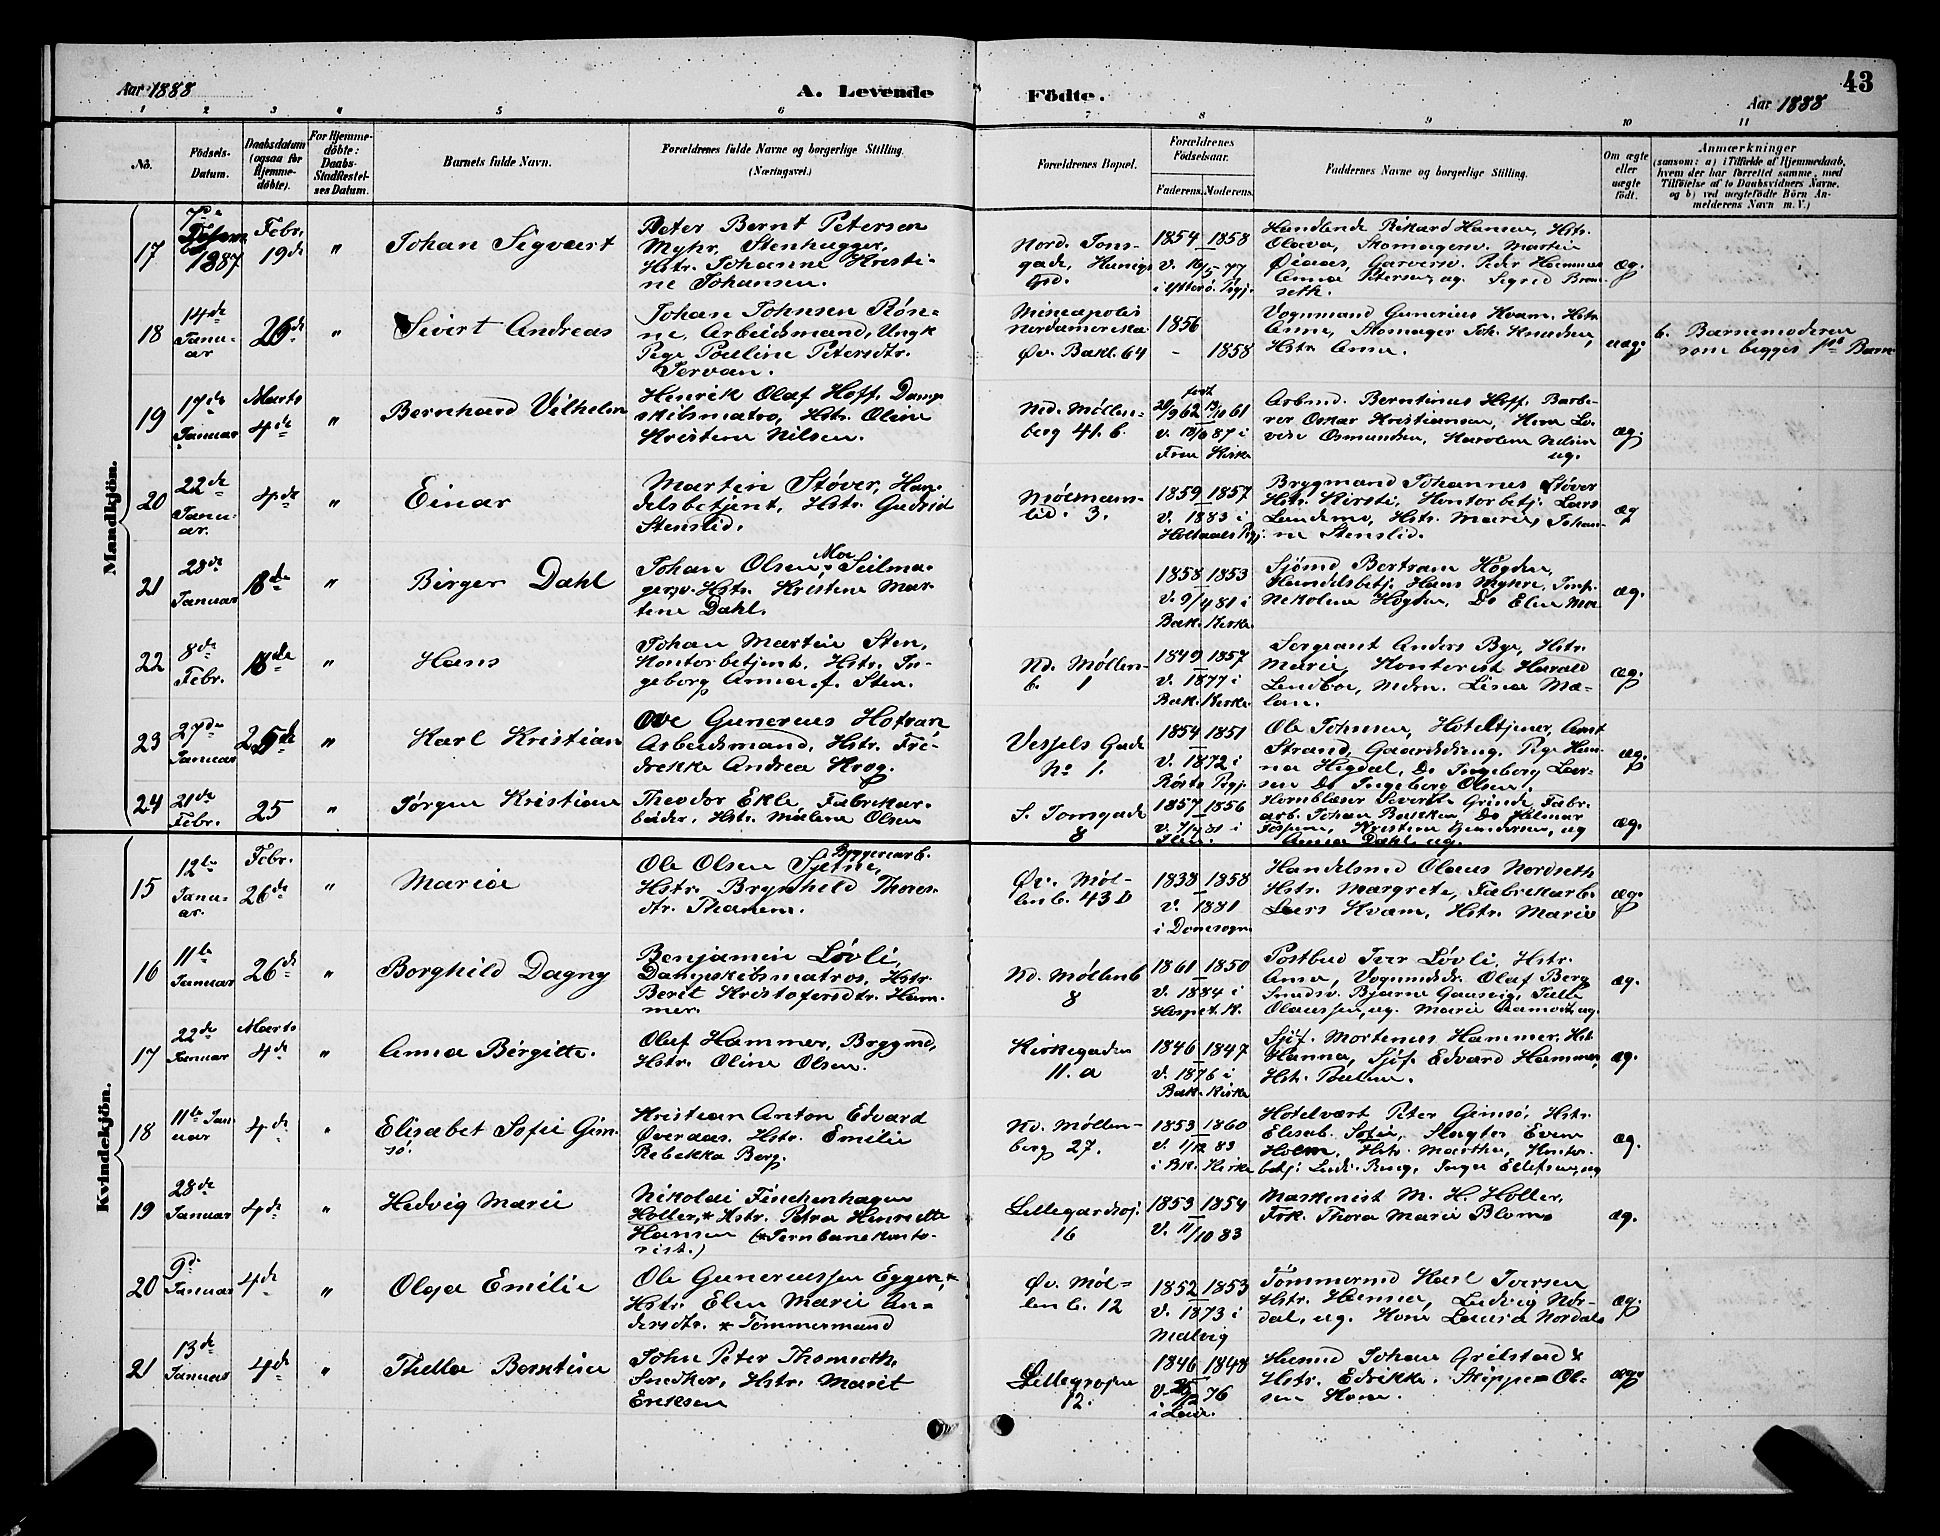 Aar 1888
A. Levende
Födte.
43
Aar 1888
1 2 3 4 5 6 7 8 9 10 11
No.
Födsels-Datum.
Daabsdatum (ogsaa for Hjemme-döbte).
For Hjemme-döbte: Daabs-Stadfæstel-ses Datum.
Barnets fulde Navn.
Forældrenes fulde Navne og borgerlige Stilling.
(Næringsvei.)
Forældrenes Bopæl.
Forældrenes Födselsaar.
Faderens. Moderens.
Faddernes Navne og borgerlige Stilling.
Om ægte eller uægte födt.
Anmærkninger
(sansom: a) i Tilfælde af Hjemmedaab,
hvem der har forrettet samme, med
Tilföielse af to Daabsvidners Navne,
og b) ved uægtefödte Börn An-
melderens Navn m.V.)
Mandkjön.
17
1887
Febr.
19de
"
Johan Segvart
Peter Bernt Petersen
Myhr, Stenhugger,
Hstr. Johanne Kristi-
ne Johansen.
Nord. Tons-
gade,
1854 1858
v. 16/5 77
Handlende Rikard Hansen, Hstr.
Olava, Skomagersv. Martin
Anna Petersen, ug. Sigrid Brem-
seth.
æg.
18
14de
Janu-
ar
26de
"
Sivert Andreas
Johan Johnsen Røn-
ne, Arbeidsmand, Ungk
Pige Pauline Petersdtr.
Servan.
Mineapolis
Nordamerika
Øv. Bakl. 64
1856
- 1858
Vognmand Gunerius Kvam, Hstr.
Anne, Skomager Joh. Knudsen,
Hstr. Anne.
uæg.
b. Barnemoderen
som begges 1ste Barn
19
17de
Januar
Marts
4de
"
Bernhard Vilhelm
Henrik Olaf Hoff, Damp-
skibsmatros, Hstr. Oline
Kristine Nilsen.
Nd. Møllen-
berg 41. b.
født
20/9 62 13/10 61
v. 13/6 87 i
Frue Kirke
Arbmd. Berntinus Hoff, Barbe-
rer Oskar Kristiansen, Hsm Lo-
vise Osmundsen, Karoline Nilsen
ug.
æg.
20
22de
Janu-
ar.
4de
"
Einar
Martin Støver, Han-
delsbetjent, Hstr. Gudrid
Stenslid.
Møllmann-
lid. 3.
1859 1857
v. 1883 i
Brygmand Johannes Støver
Hstr. Kirsti, Kontorbetj. Lars
Lundemo, Hstr. Marie, Johan-
ne Stenslid.
æg
21
28de
Januar
18de
"
Birger Dahl
Johan Olsen Moe, Seilma-
gersv. Hstr. Kristine Mar-
tine Dahl.
1858 1853
v. 9/4 81 i
Bak. Kirke
Sjømd Bertram Høgden,
Handelsbetj. Hans Myhre, Jmfr.
Nekoline Høgden, Do Elen Moe
æg.
22
8de
Febr.
18de
"
Hans
Johan Martin Sten,
Kontorbetjent, Hstr. In-
geborg Anna f. Sten.
Nd. Møllen-
b. 1
1849 1857
v. 1877 i
Bak. Kirke
Sergeant Anders Bye, Hstr.
Marie, Kontorist Harald
Lundboe, Mdm. Lina Mæ-
lan.
æg.
23
27de
Januar
25de
"
Karl Kristian
Ove Gunerius Hofran
Arbeidsmand, Hstr. Fre-
drekke Andrea Krog.
Vessels Gade
No 1.
1854 1851
v. 1872 i
Ole Johnsen, Hoteltjener, Arnt
Strand, Gaardsdreng, Pige Han-
na Hegdal, Do Ingeborg Lar-
sen Do Ingeborg Olsen.
æg.
24
21de
Febr.
25
"
Jørgen Kristian
Theodor Ekle, Fabrikar-
beider, Hstr. Malene Olsen
S. Tonsgade
8
1857 1856
Hornblæser Sivert Grinde, Fabr.
arb. Johan Bakken Do Hilmar
Anna Dahl ug.
æg.
Kvindekjön.
15
12te
Janu-
ar.
Febr.
26de
"
Maria
Ole Olsen Sjetne, Byggeriarb.
Hstr. Brynhild Thores-
dtr. Thanem.
Øv. Møl-
lenb. 43 D
1838 1858
v. 1881
i Domsogn
Handelsmd Olaus Nordseth
Hstr. Margrete, Fabrikarb.
Lars Kvam, Hstr. Marie
æg.
16
11te
Januar
26de
"
Borghild Dagny
Benjamin Løvli,
Dampskibsmatros, Hstr.
Berit Kristofersdtr. Ham-
mer.
Nd. Møllenb
8
1861 1850
v. 1884 i
Hospit. K.
Postbud Iver Løvli, Hstr.
Anna, Vognmdsdr. Olaf Berg
Smedsv. Bjarne Gausvig, Jalle
Olaussen, ug. Marie Aamodt, ug.
æg.
17
22de
Januar
Marts
4de
"
Anna Bergitte.
Olaf Hammer, Brygmd,
Hstr. Oline Olsen.
Kirkegaden
11. a
1846 1847
v. 1876 i
Bak. Kirke
Sjøf. Mortenus Hammer, Hst.
Hanna, Sjøf. Edvard Hammer,
Hstr. Pauline.
æg.
18
11te Jan-
uar
4de
"
Elisabet Sofie Gim-
sö.
Kristian Anton Edvard
Øveraas. Hstr. Emilie
Rebekka Berg.
Nd. Møllen-
berg 27.
1853 1860
v. 1/12 83
i Bk. Kirke
Hotelvært Peter Gimsø, Hstr.
Elisab. Sofie, Slagter Even
Holm, Hstr. Marthe, Kontor-
betj. Ludv. Berg, Inger Ellefsen, ug
æg.
19
28de
Januar
4de
"
Hedvig Marie
Nikolai Finchenhagen
Holler,* Hstr. Petra Henrette
Hansen (*Jernbanekonto-
rist.)
Lillegardsoj.
16
1853 1854
v. 11/10 83
Maskinist M. H. Holler,
Frk. Thora Marie Blom
æg.
20
9de
Januar
4de
"
Olga Emilie
Ole Guneriussen Eggen,*
Hstr. Elen Marie An-
dersdtr. * Tömmermand
Øv. Møl-
lenb. 12
1852 1853
v. 1873 i
Malvig
Tömmermd Karl Iversen
Hstr. Hanna, Ludvig Nor-
dal, ug. Kone Laura Nordal
æg.
21
13de
Januar
4de
"
Thella Berntine
John Peter Thomseth,
Snedker, Hstr. Marit
Eriksen
12.
1846 1848
76
Husmd Johan Grilstad &
Hstr. Edrikke. Skipper Ol-
sen Hom.
æg.